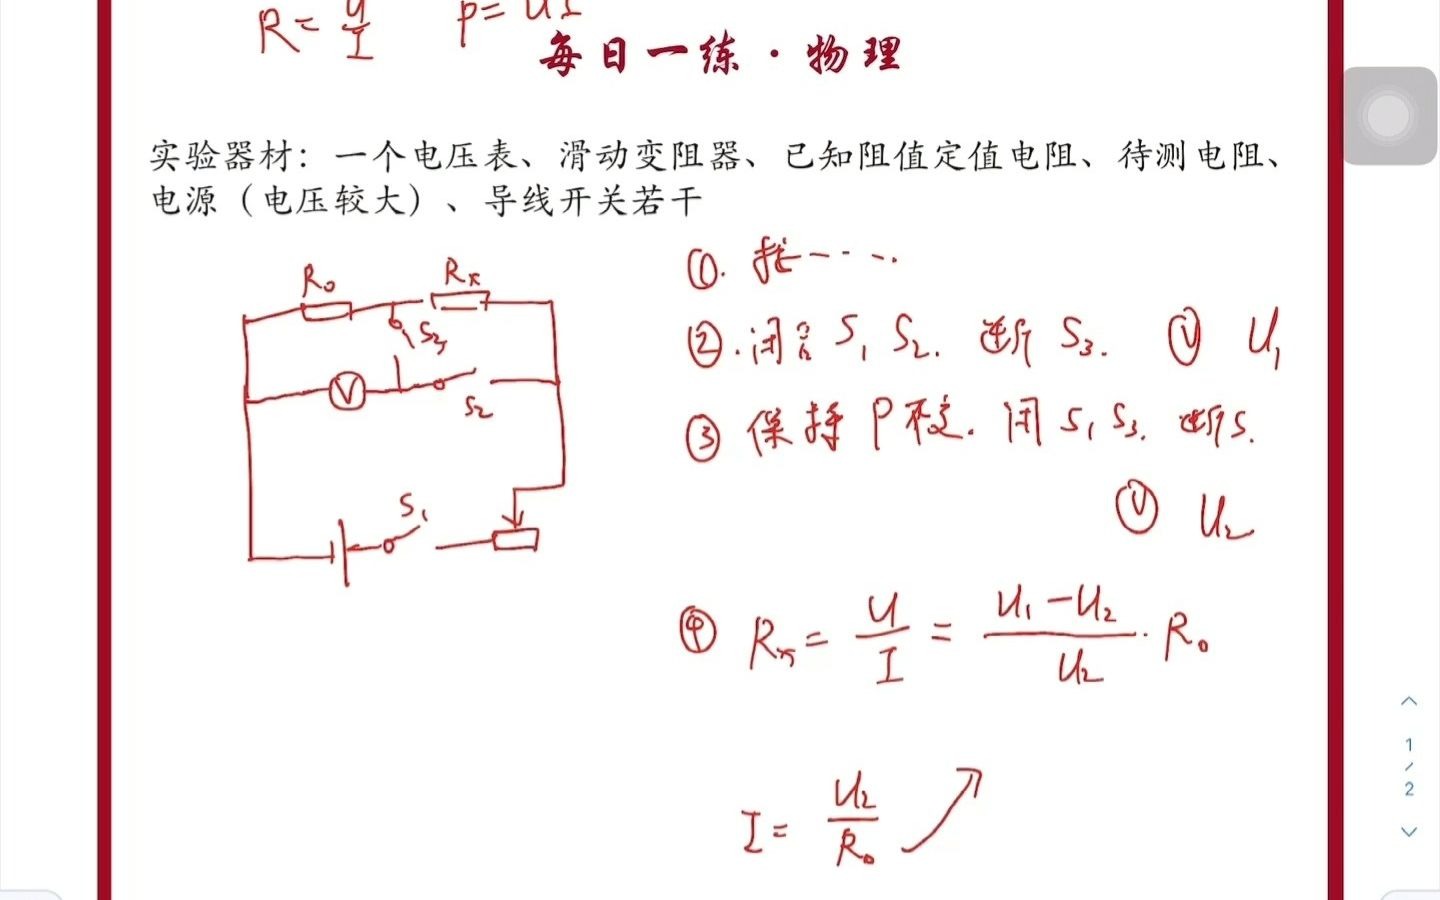 R = U/I P = UI
每日一练·物理
实验器材：一个电压表、滑动变阻器、已知阻值定值电阻、待测电阻、
电源（电压较大）、导线开关若干
R₀ Rx
S₃
V S₂
S₁
①. 按·····
②. 闭合 S₁ S₂. 断 S₃. Ⓥ U₁
③ 保持 P 不变. 闭 S₁ S₃. 断 S.
Ⓥ U₂
④ Rx = U/I = (U₁-U₂)/U₂ · R₀
I = U₂/R₀
1/2